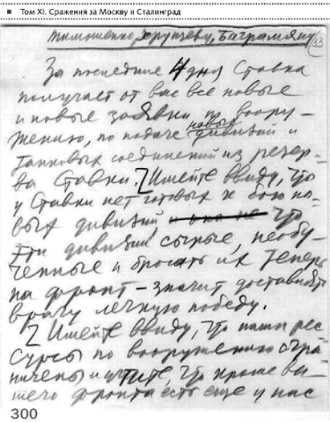 Том XI. Сражения за Москву и Сталинград
Тимошенко, Хрущеву, Баграмяну
За последние 4 дня Ставка
получает от вас все новые
и новые заявки по воору-
жению, по подаче новых дивизий и
танковых соединений из резер-
ва Ставки. Имейте ввиду, что
у Ставки нет готовых к бою но-
вых дивизий что
эти дивизии сырые, необу-
ченные и бросать их теперь
на фронт – значит доставлять
врагу легкую победу.
Имейте ввиду, что наши рес-
сурсы по вооружению огра-
ничены и учтите, что кроме ва-
шего фронта есть еще у нас
300